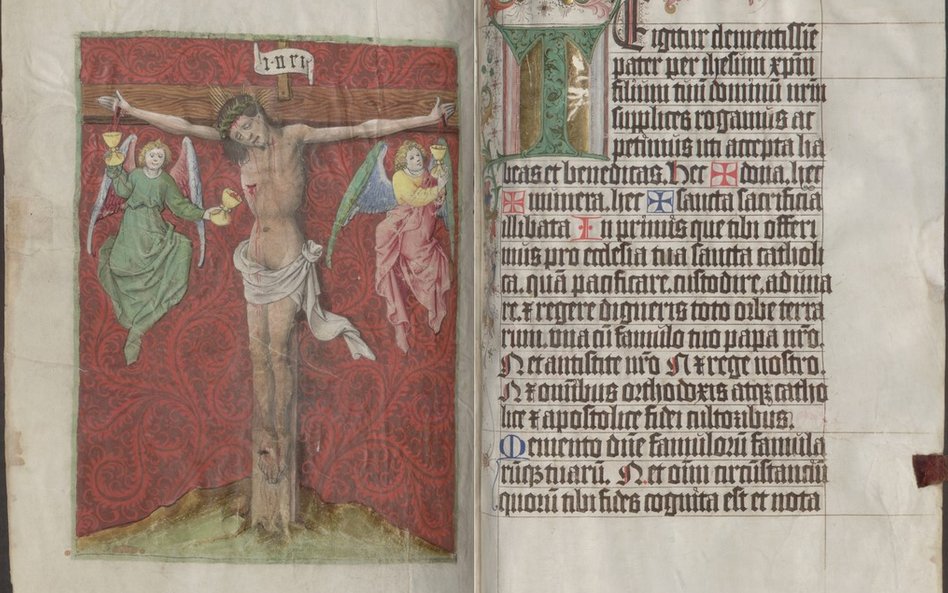 i·n·ri
Te igitur clementissie
pater per ihesum xpm
filium tuum dominum nrm
supplices rogamus ac
petimus uti accepta ha
beas et benedicas. Hec ✠ dona, hec
✠ munera, hec ✠ sancta sacrificia
illibata In primis que tibi offeri
mus pro ecclesia tua sancta catholi
ca, quā pacificare, custodire, aduna
re. ⁊ regere digneris toto orbe terra
rum, vna cū famulo tuo papa nro.
N et antistite nro N ⁊ rege nostro.
N ⁊ omibus orthodoxis atqꝫ catho
lice ⁊ apostolice fidei cultoribus.
Memento dne famulorū famula
rūqꝫ tuarū. N et oīm circūstanciū
quorū tibi fides cognita est et nota